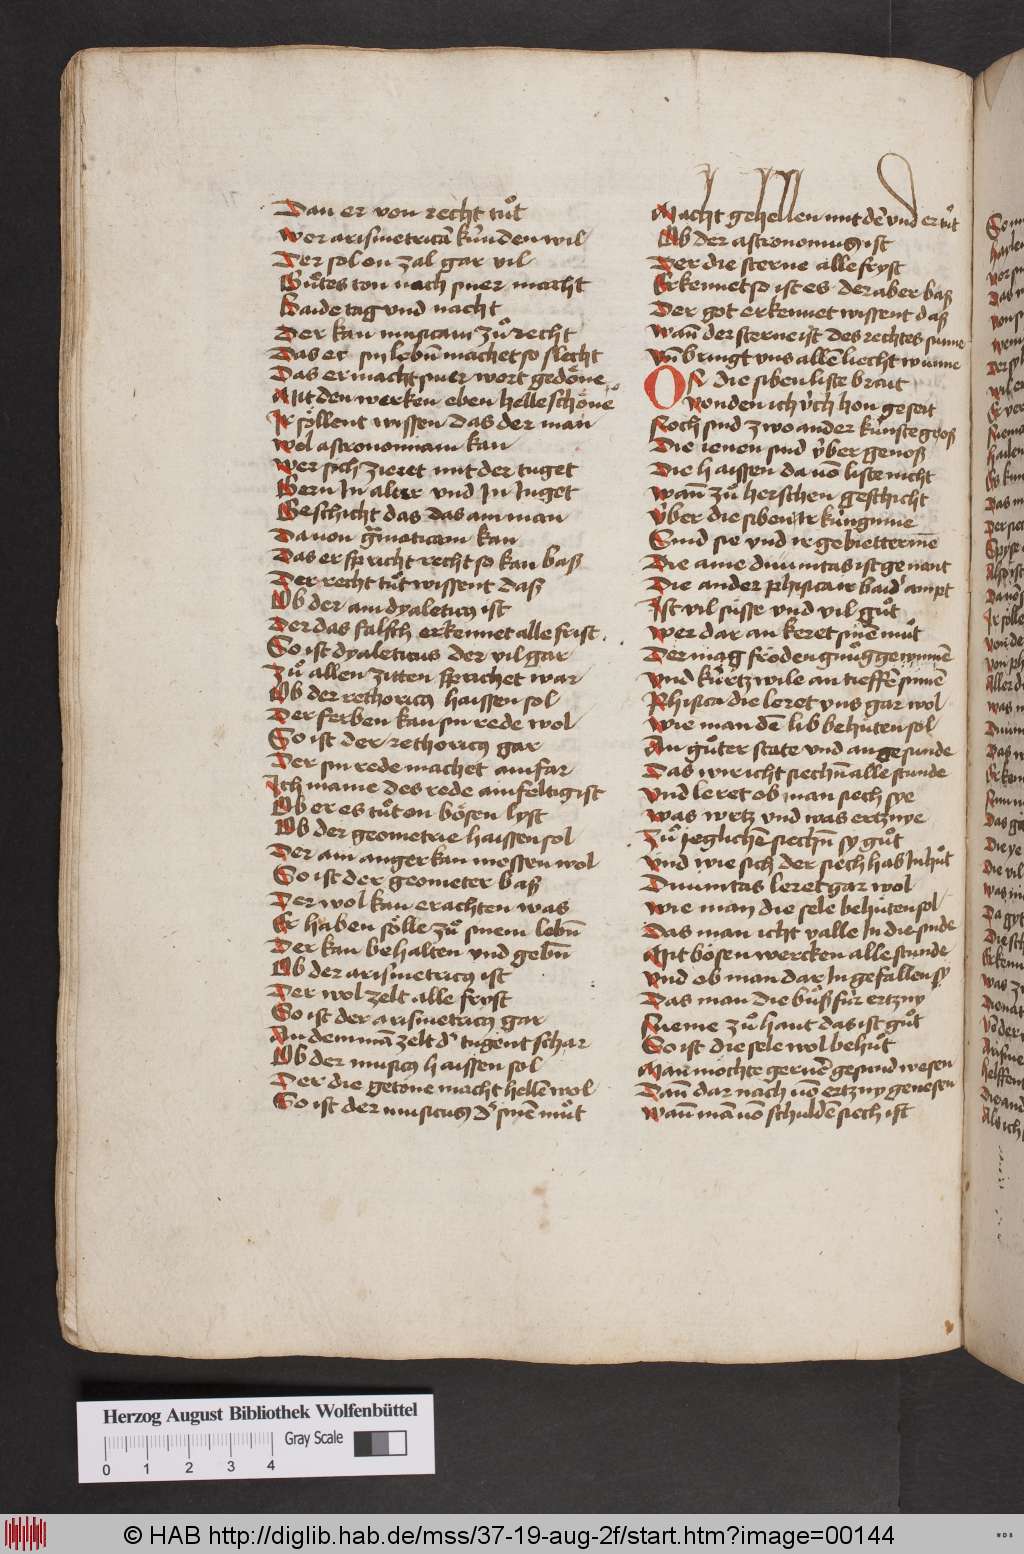 Dan er von recht tuͦt
wer arismetricā kúnden wil
Der sol on zal gar vil
Guͦtes ton nach siner macht
Baide tag vnd nacht
Der kan musicam zuͦ recht
Das er sin lebn̄ machet so slecht
Das er macht siner wort gedoͤne
Mit den werken eben helle schoͤne
Ir soͤllent wissen das der man
wol astronomiam kan
wer sich zieret mit der tuget
Gern In alter vnd In Iuget
Geschicht das das ain man
Da von gͣmaticam kan
Das er spricht recht so kan baß
Der recht tuͦt wissent daß
Ob der ain dyaleticꝰ ist
Der das falsch erkennet alle frist
So ist dyaleticus der vil gar
Zuͦ allen zitten sprichet war
Ob der rethoricꝰ haissen sol
Der ferben kan sin rede wol
So ist der rethoricꝰ gar
Der sin rede machet ainfar
Ich maine des rede ainfeltig ist
Ob er es tuͦt on boͤsen lyst
Ob der geometrie haissen sol
Der ain anger kan messen wol
So ist der geometer baß
Der wol kan erachten was
Er haben soͤlle zuͦ sinem lebn̄
Der kan behalten vnd gebn̄
Ob der arismetricꝰ ist
Der wol zelt alle fryst
So ist der arismetricꝰ gar
An dem mā zelt dˢ tugent schar
Ob der musicꝰ haissen sol
Der die getone macht hellē wol
So ist der musicus dˢ sinē muͦt
Macht gehellen mit dē vnd er tuͦt
Ob der astronomus ist
Der die sterne alle fryst
Erkennet so ist es der aber baß
Der got erkennet wissent daß
wan̄ der sterne ist des rechtes sunne
vn̄ bringt vns allē liecht wunne
Off die siben liste brait
Von den ich v́ch hon geseit
Noch sind zwo ander kúnste groß
Die ienen sind v́ber genoß
Die haissen da vō liste nicht
wan̄ zuͦ herschen geschicht
v́ber die siben Ir kúnginne
Sind sie vnd ir gebietterinē
Die aine diuinitas ist genant
Die ander phisica ir baidˢ ampt
Ist vil sússe vnd vil guͦt
wer dar an keret sinē muͦt
Der mag froden gnuͦg gewinnē
vnd kúrtzwile an tieffē sinnē
Phisica die leret vns gar wol
wie man dē lib behúten sol
An guͦter state vnd an gesunde
Das wir icht siechn̄ alle stunde
vnd leret ob man siech sye
was wrtz vnd was ertznye
Zuͦ ieglichē siechn̄ sy guͦt
vnd wie sich der siech hab In huͦt
Diuinitas leret gar wol
wie man die sele behúten sol
Das man icht valle In die sinde
Mit bósen wercken alle stunde
vnd ob man dar In gefallen sy
Das man die buͦß fúr ertzny
Neme zuͦ hant das ist guͦt
So ist die sele wol behuͦt
Man móchte gernē gesund wesen
Dan̄ dar nach vō ertzny genesen
wan̄ mā vō schuldē siech ist
Herzog August Bibliothek Wolfenbüttel
Gray Scale
0 1 2 3 4
© HAB http://diglib.hab.de/mss/37-19-aug-2f/start.htm?image=00144